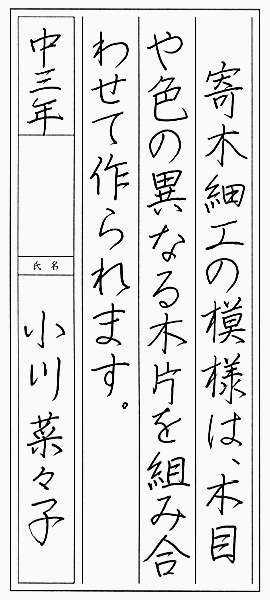 寄木細工の模様は、木目
や色の異なる木片を組み合
わせて作られます。
中三年
氏名
小川菜々子